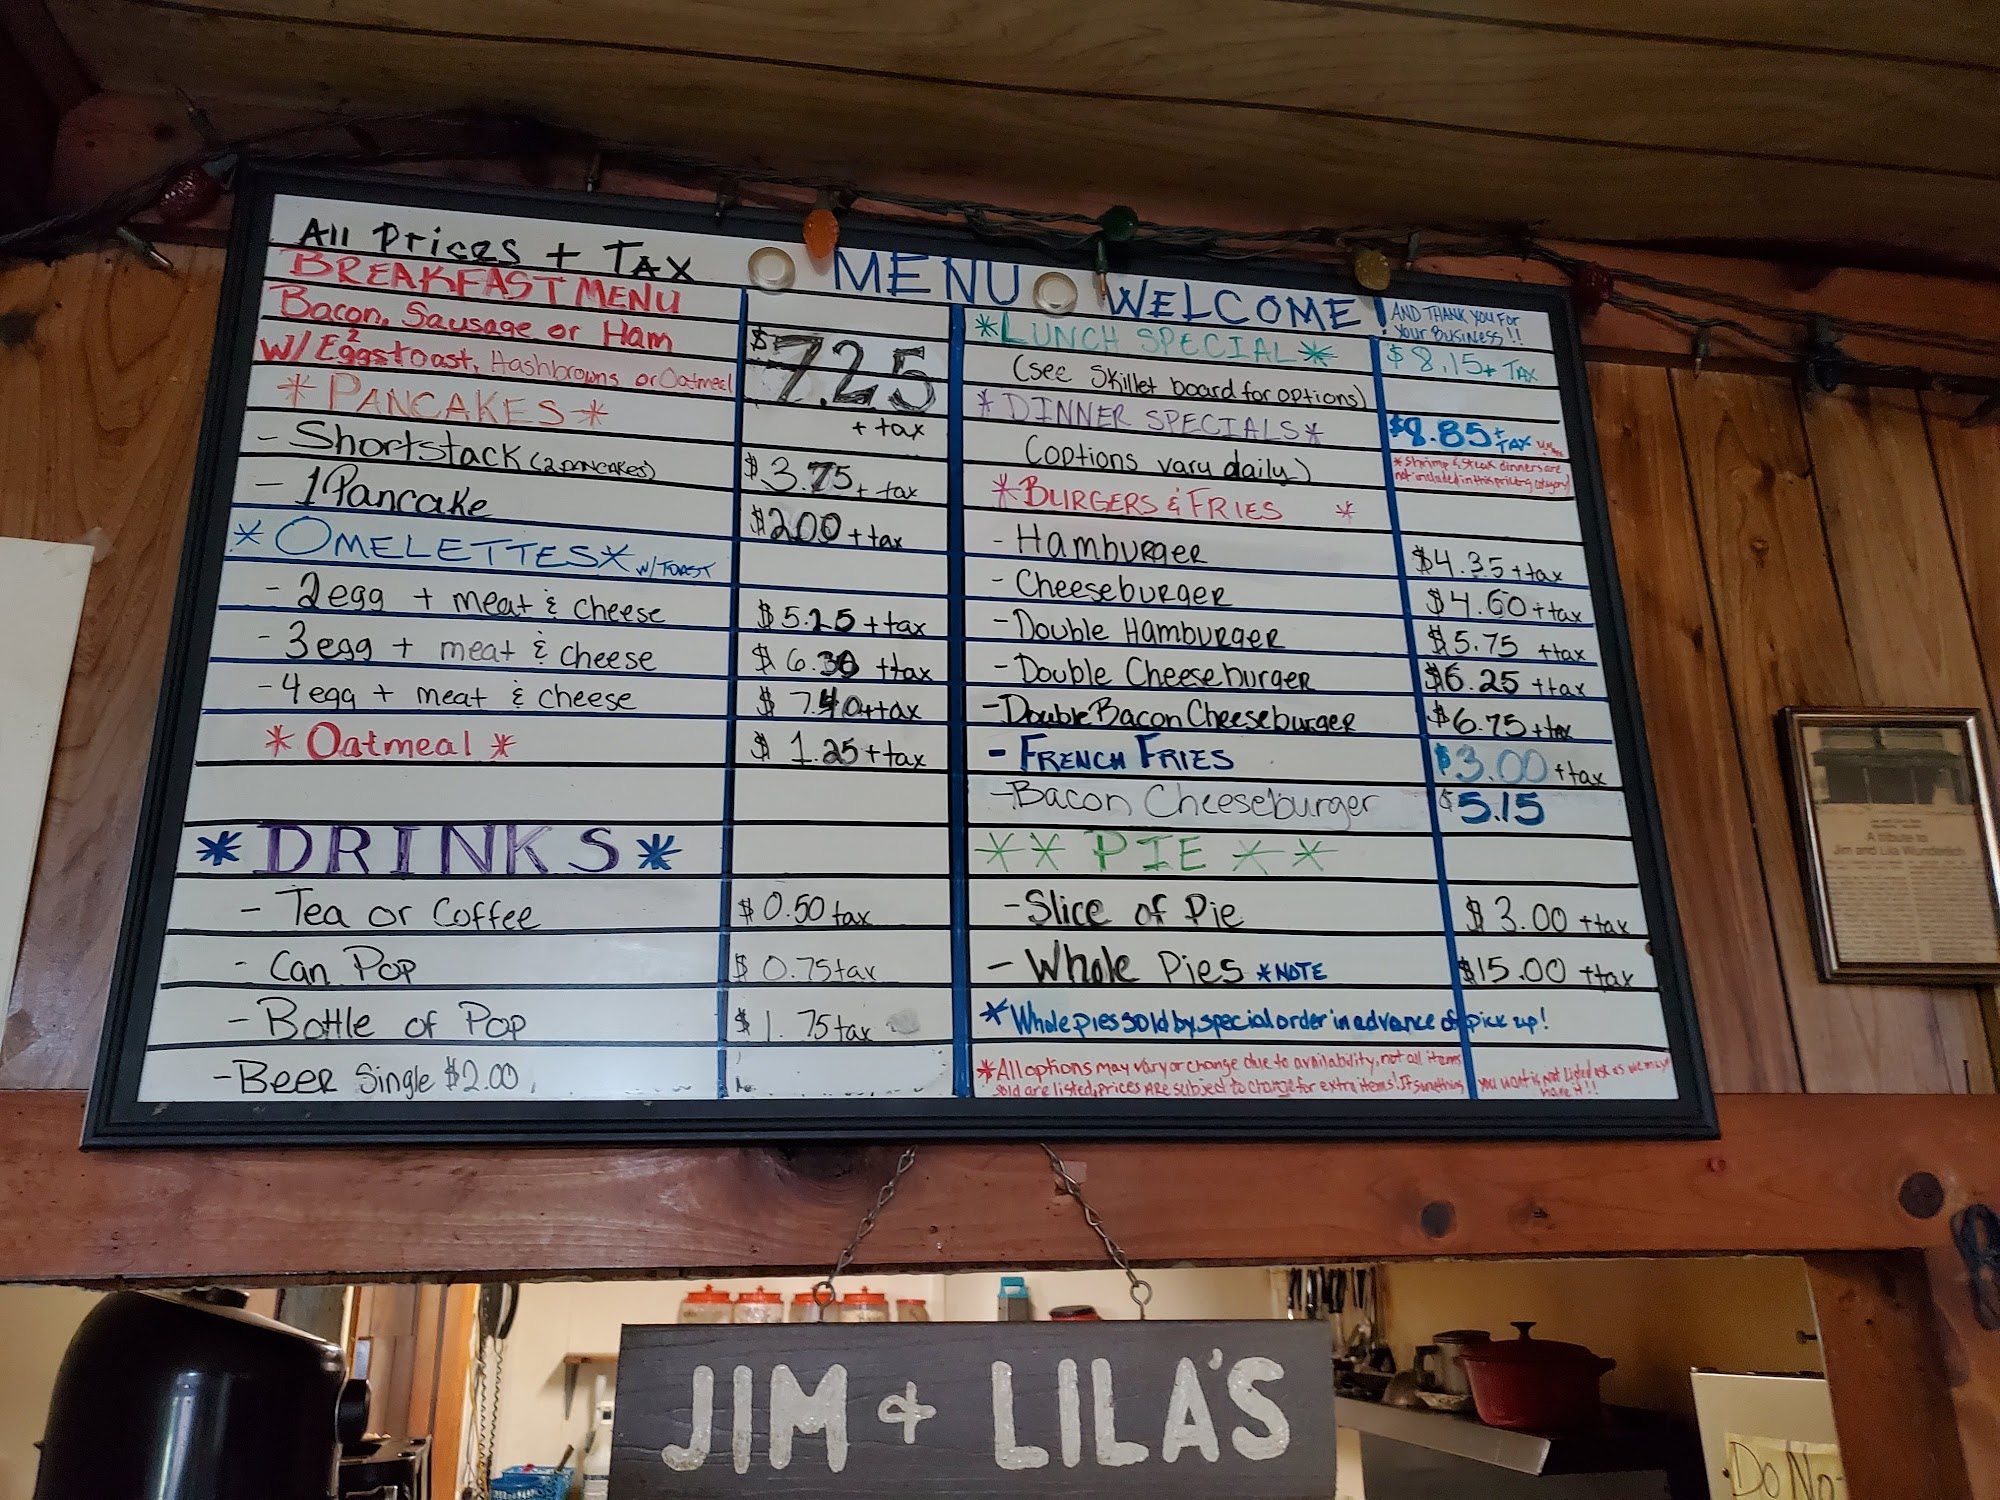 All Prices + TAX
MENU
WELCOME!
AND THANK YOU FOR
Your Business!!
BREAKFAST MENU
Bacon, Sausage or Ham
W/ 2 Eggs toast, Hashbrowns or Oatmeal
$7.25
+ tax
*PANCAKES*
- Shortstack (2 PANCAKES) $3.75 + tax
- 1 Pancake $2.00 + tax
*OMELETTES* W/TOAST
- 2 egg + meat & cheese $5.25 + tax
- 3 egg + meat & cheese $6.30 + tax
- 4 egg + meat & cheese $7.40 + tax
*Oatmeal* $1.25 + tax
*DRINKS*
- Tea or Coffee $0.50 tax
- Can Pop $0.75 tax
- Bottle of Pop $1.75 tax
- Beer Single $2.00
*LUNCH SPECIAL* $8.15 + TAX
(see Skillet board for options)
*DINNER SPECIALS* $8.85 + TAX
(options vary daily)
*Shrimp & Steak dinners are
not included in this pricing category!
*BURGERS & FRIES *
- Hamburger $4.35 + tax
- Cheeseburger $4.60 + tax
- Double Hamburger $5.75 + tax
- Double Cheeseburger $6.25 + tax
- Double Bacon Cheeseburger $6.75 + tax
- FRENCH FRIES $3.00 + tax
- Bacon Cheeseburger $5.15
** PIE **
- Slice of Pie $3.00 + tax
- Whole Pies *NOTE $15.00 + tax
*Whole pies sold by special order in advance of pick up!
*All options may vary or change due to availability, not all items
sold are listed, prices are subject to change for extra items! If something you want is not listed ask as we may
have it!!
A tribute to
Jim and Lila Wunderlich
JIM & LILA'S
Do No